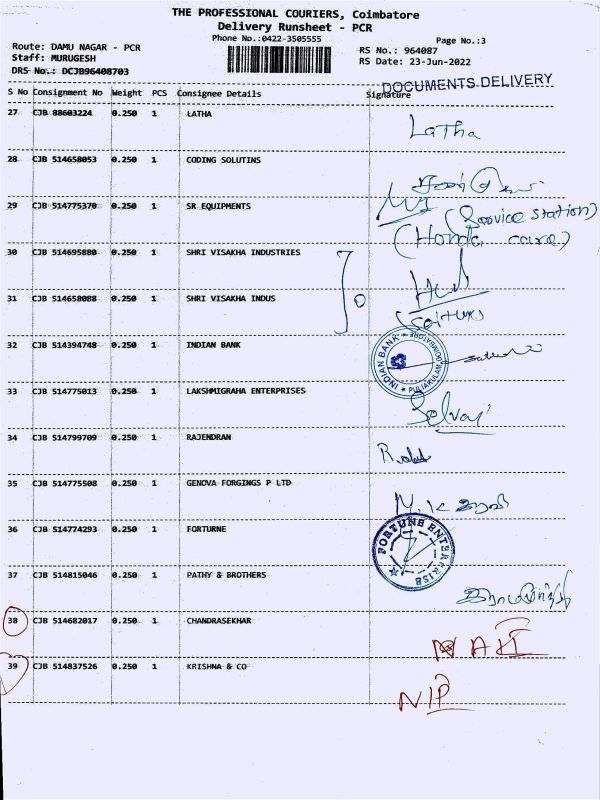 THE PROFESSIONAL COURIERS, Coimbatore
Delivery Runsheet - PCR
Phone No.:0422-3505555
Page No.:3
Route: DAMU NAGAR - PCR
RS No.: 964087
Staff: MURUGESH
RS Date: 23-Jun-2022
DRS No.: DCJB96408703
DOCUMENTS DELIVERY
S No Consignment No Weight PCS Consignee Details Signature
27 CJB 88603224 0.250 1 LATHA Latha
28 CJB 514658053 0.250 1 CODING SOLUTINS
29 CJB 514775370 0.250 1 SR EQUIPMENTS (Service station)
(Honda care)
30 CJB 514695880 0.250 1 SHRI VISAKHA INDUSTRIES
31 CJB 514658088 0.250 1 SHRI VISAKHA INDUS
32 CJB 514394748 0.250 1 INDIAN BANK INDIAN BANK * PULIAKULAM COIMBATORE *
33 CJB 514775013 0.250 1 LAKSHMIGRAHA ENTERPRISES Selvaj
34 CJB 514799709 0.250 1 RAJENDRAN
35 CJB 514775508 0.250 1 GENOVA FORGINGS P LTD
36 CJB 514774293 0.250 1 FORTURNE FORTUNE ENTERPRISE
37 CJB 514815046 0.250 1 PATHY & BROTHERS
38 CJB 514682017 0.250 1 CHANDRASEKHAR
39 CJB 514837526 0.250 1 KRISHNA & CO NIP